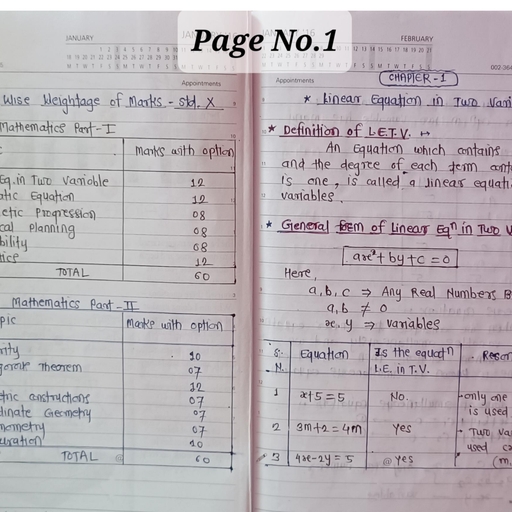 Page No.1
JANUARY
Appointments
Wise Weightage of Marks - std. X
Mathematics Part-I
Marks with option
Eq.in Two Variable 12
atic Equation 12
etic Progression 08
cal Planning 08
bility 08
tics 12
TOTAL 60
Mathematics Part-II
pic Marks with option
rity 10
gorous Theorem 07
12
tric constructions 07
dinate Geometry 07
nometry 07
uration 10
TOTAL 60
FEBRUARY
Appointments 002-364
CHAPTER-1
* Linear Equation in Two Vari
* Definition of L.E.T.V. ↦
An Equation which contains
and the degree of each term cont
is one, is called a linear equati
variables.
* General form of Linear Eqn in Two V
ax² + by + c = 0
Here,
a, b, c ⇒ Any Real Numbers B
a, b ≠ 0
x, y ⇒ variables
S.N. Equation Is the equatn L.E. in T.V. Reason
1 x+5=5 No. - only one
is used
2 3m+2=4m Yes - Two va
used
(m.
3 4x-2y=5 Yes